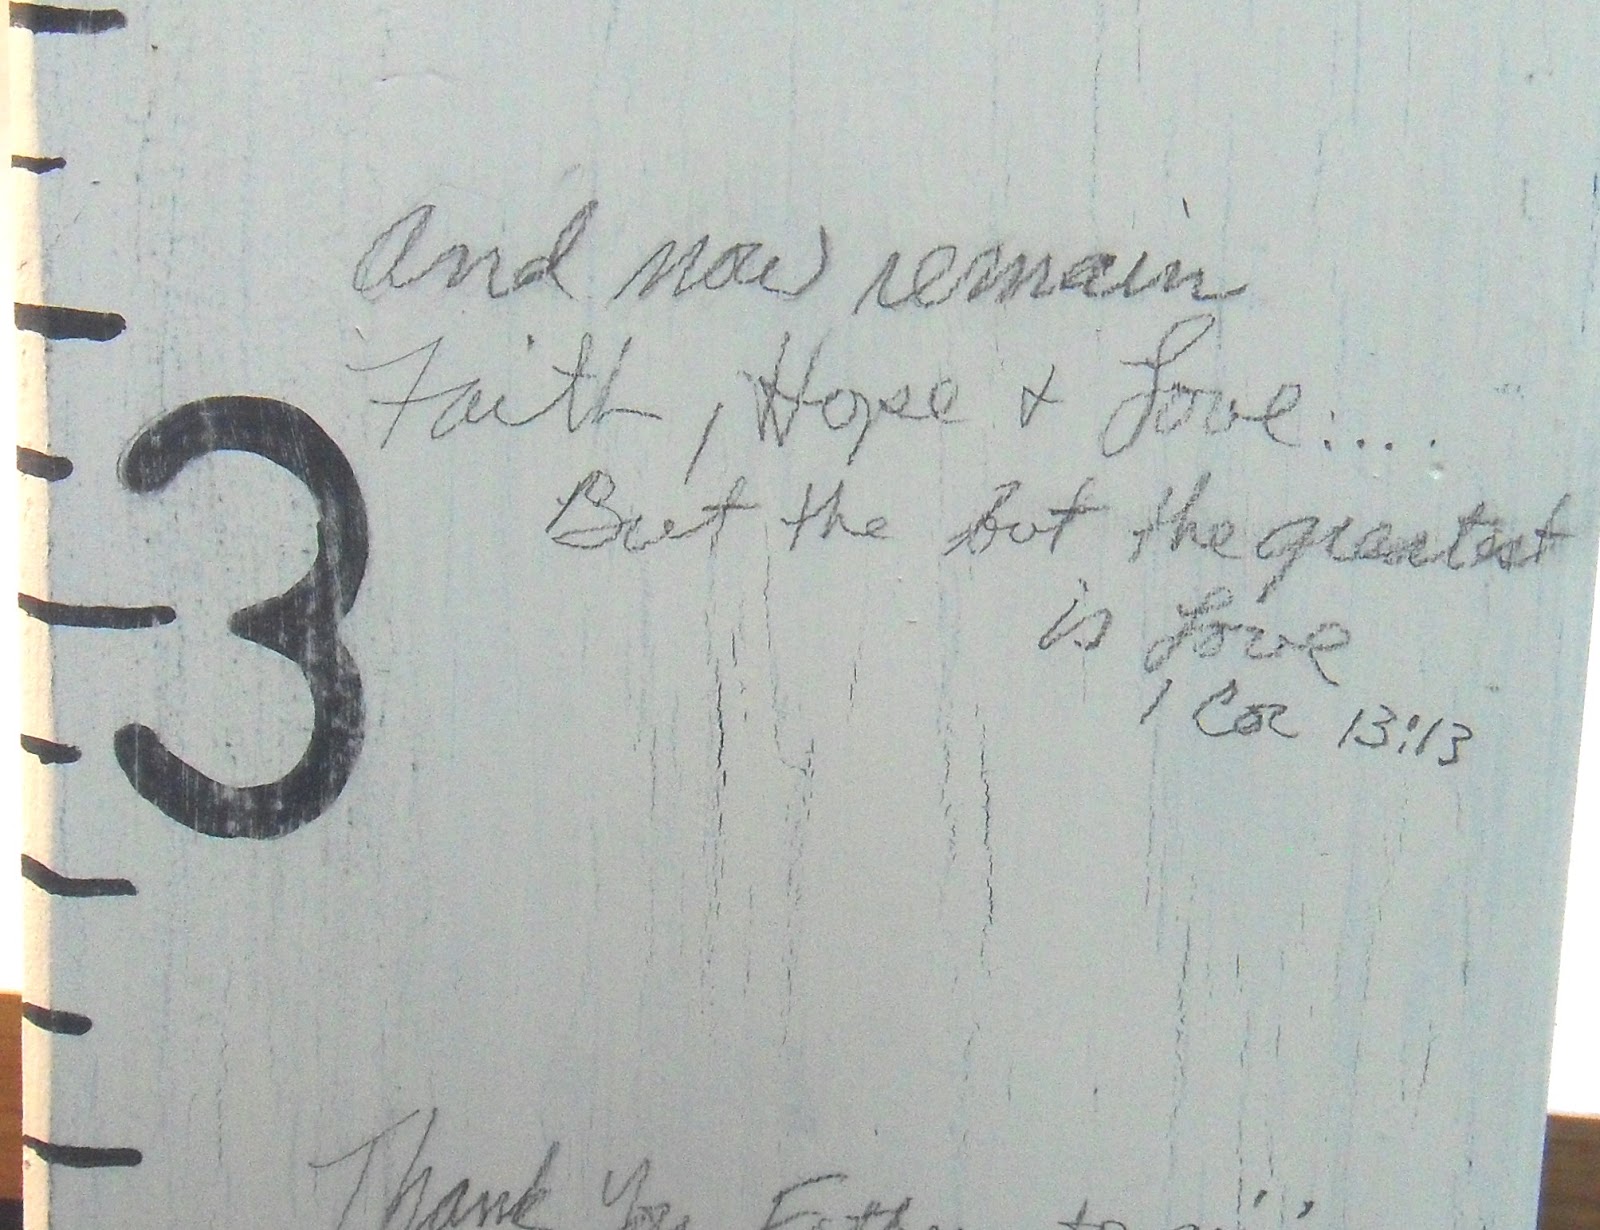 And now remain
Faith, Hope & Love....
But the but the greatest
is Love
1 Cor 13:13
3
Thank You Father